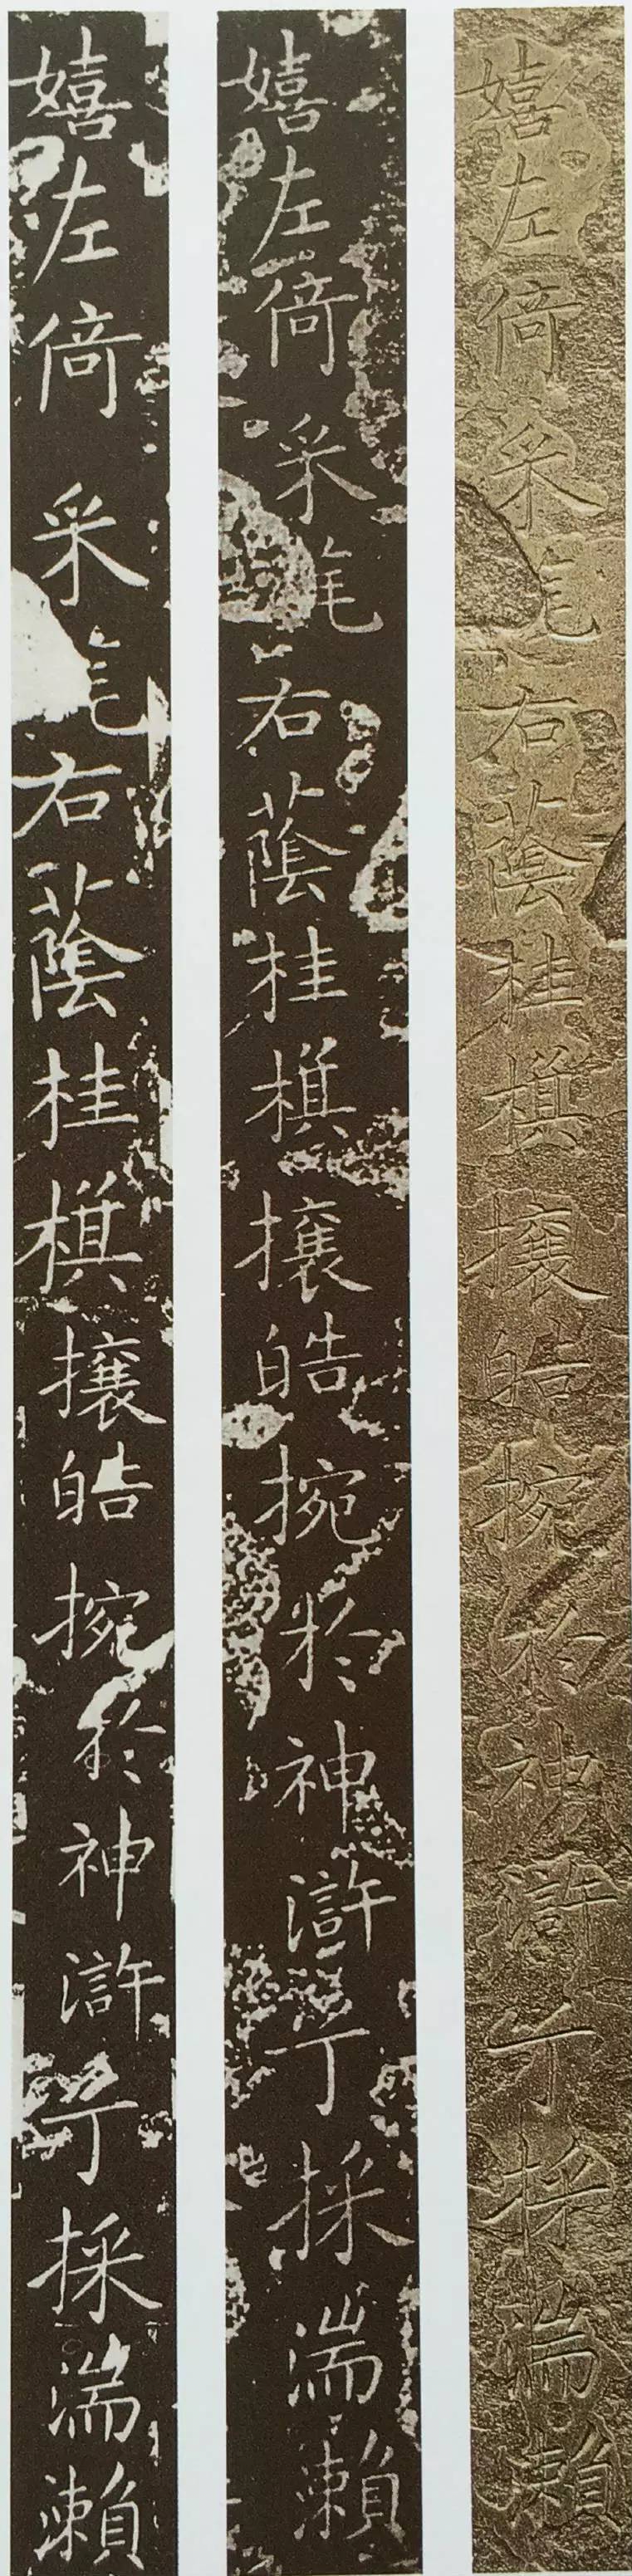 嬉左倚采旄右蔭桂棋攘皓捥於神滸兮採湍瀨
嬉左倚采旄右蔭桂棋攘皓捥於神滸兮採湍瀨
嬉左倚采旄右蔭桂棋攘皓捥於神滸兮採湍瀨